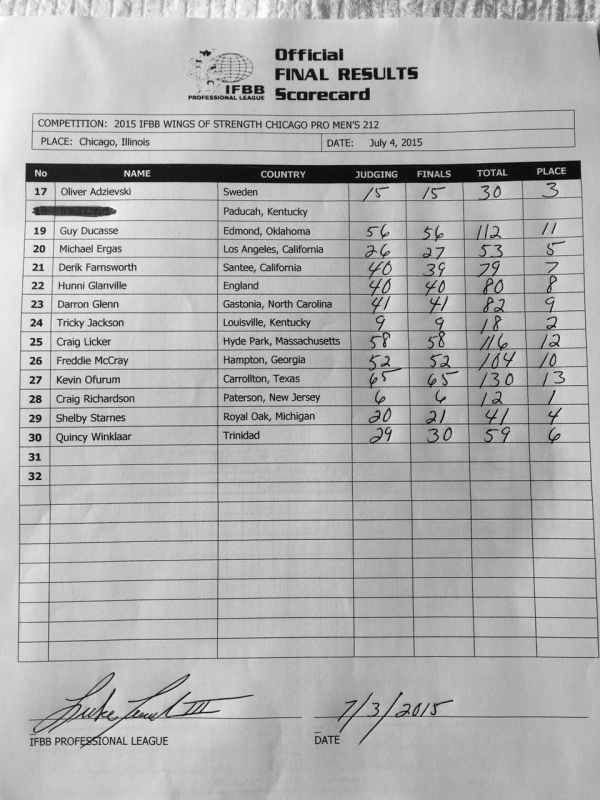 Official
FINAL RESULTS
Scorecard
IFBB
PROFESSIONAL LEAGUE
COMPETITION: 2015 IFBB WINGS OF STRENGTH CHICAGO PRO MEN'S 212
PLACE: Chicago, Illinois DATE: July 4, 2015
No NAME COUNTRY JUDGING FINALS TOTAL PLACE
17 Oliver Adzievski Sweden 15 15 30 3
Paducah, Kentucky
19 Guy Ducasse Edmond, Oklahoma 56 56 112 11
20 Michael Ergas Los Angeles, California 26 27 53 5
21 Derik Farnsworth Santee, California 40 39 79 7
22 Hunni Glanville England 40 40 80 8
23 Darron Glenn Gastonia, North Carolina 41 41 82 9
24 Tricky Jackson Louisville, Kentucky 9 9 18 2
25 Craig Licker Hyde Park, Massachusetts 58 58 116 12
26 Freddie McCray Hampton, Georgia 52 52 104 10
27 Kevin Ofurum Carrollton, Texas 65 65 130 13
28 Craig Richardson Paterson, New Jersey 6 6 12 1
29 Shelby Starnes Royal Oak, Michigan 20 21 41 4
30 Quincy Winklaar Trinidad 29 30 59 6
31
32
7/3/2015
IFBB PROFESSIONAL LEAGUE DATE